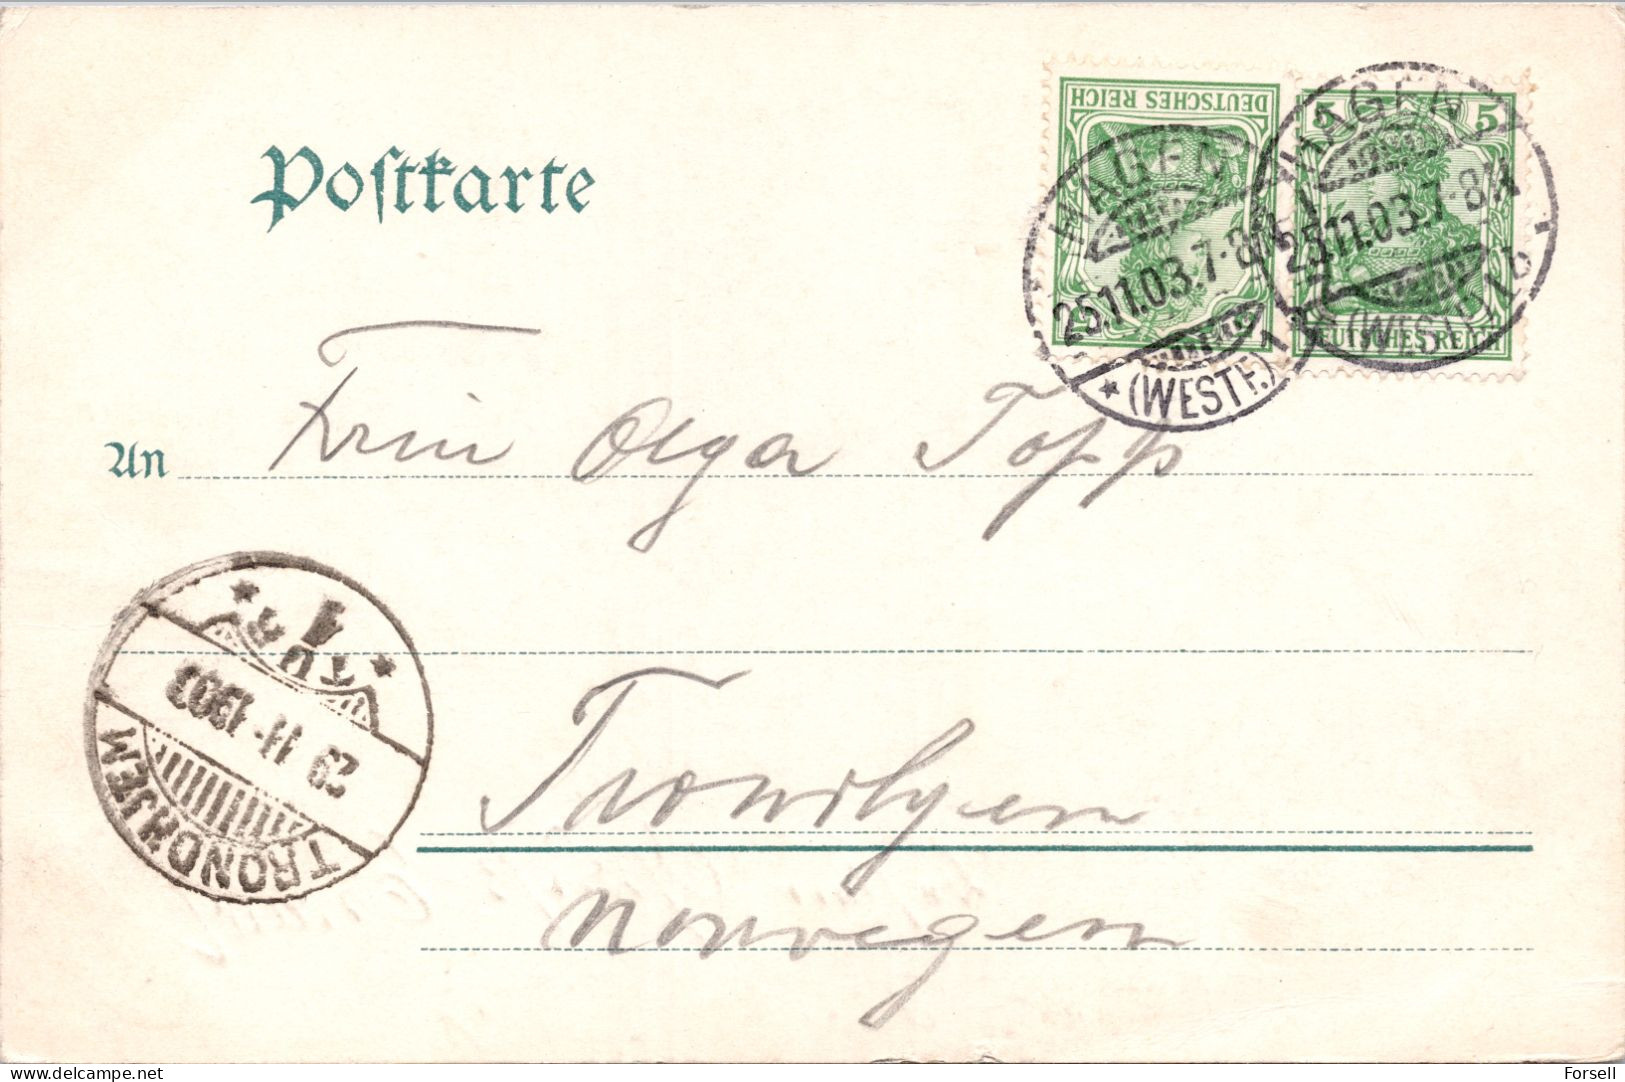 Postkarte
DEUTSCHES REICH
5 5
DEUTSCHES REICH
HAGEN
25.11.03.7-8N
* (WESTF.) 1
HAGEN
25.11.03.7-8N
(WESTF.) 1 b
An Frin Olga Topp
TUR
1
29 11-1903
TRONDHJEM
Trondhjem
Norwegen
delcampe.net
Forsell